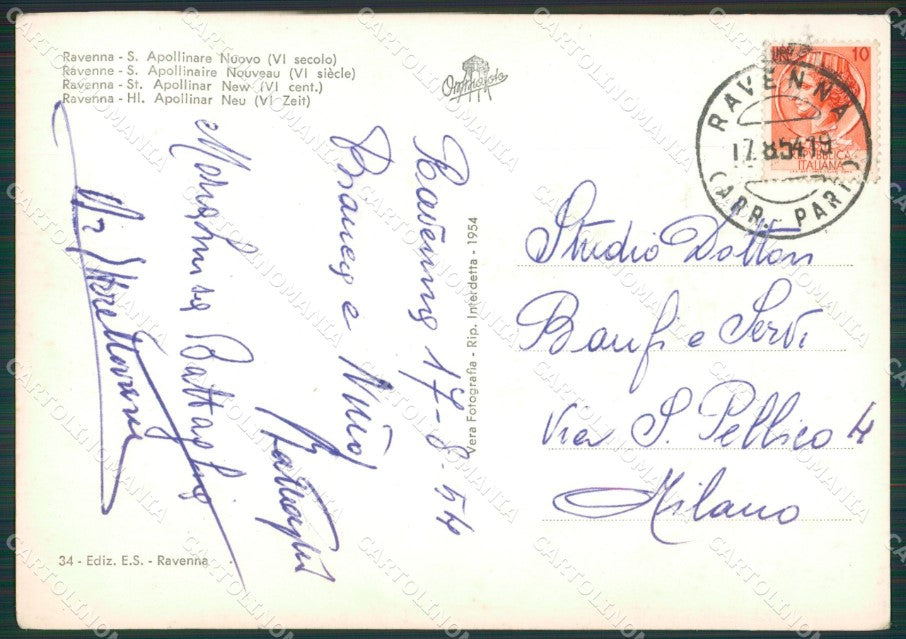 Ravenna - S. Apollinare Nuovo (VI secolo)
Ravenne - S. Apollinaire Nouveau (VI siècle)
Ravenna - St. Apollinar New (VI cent.)
Ravenna - Hl. Apollinar Neu (VI Zeit)
10
RAVENNA
17.8.54.19
(ARR. PART.)
REPUBBLICA
ITALIANA
Ravenna 17-8-54
e Nino
Battaglia
Battaglia
Vera Fotografia - Rip. Interdetta - 1954
Studio Dottori
Banfi e Servi
Via S. Pellico 4
Milano
34 - Ediz. E.S. - Ravenna
CARTOLINOMANIA